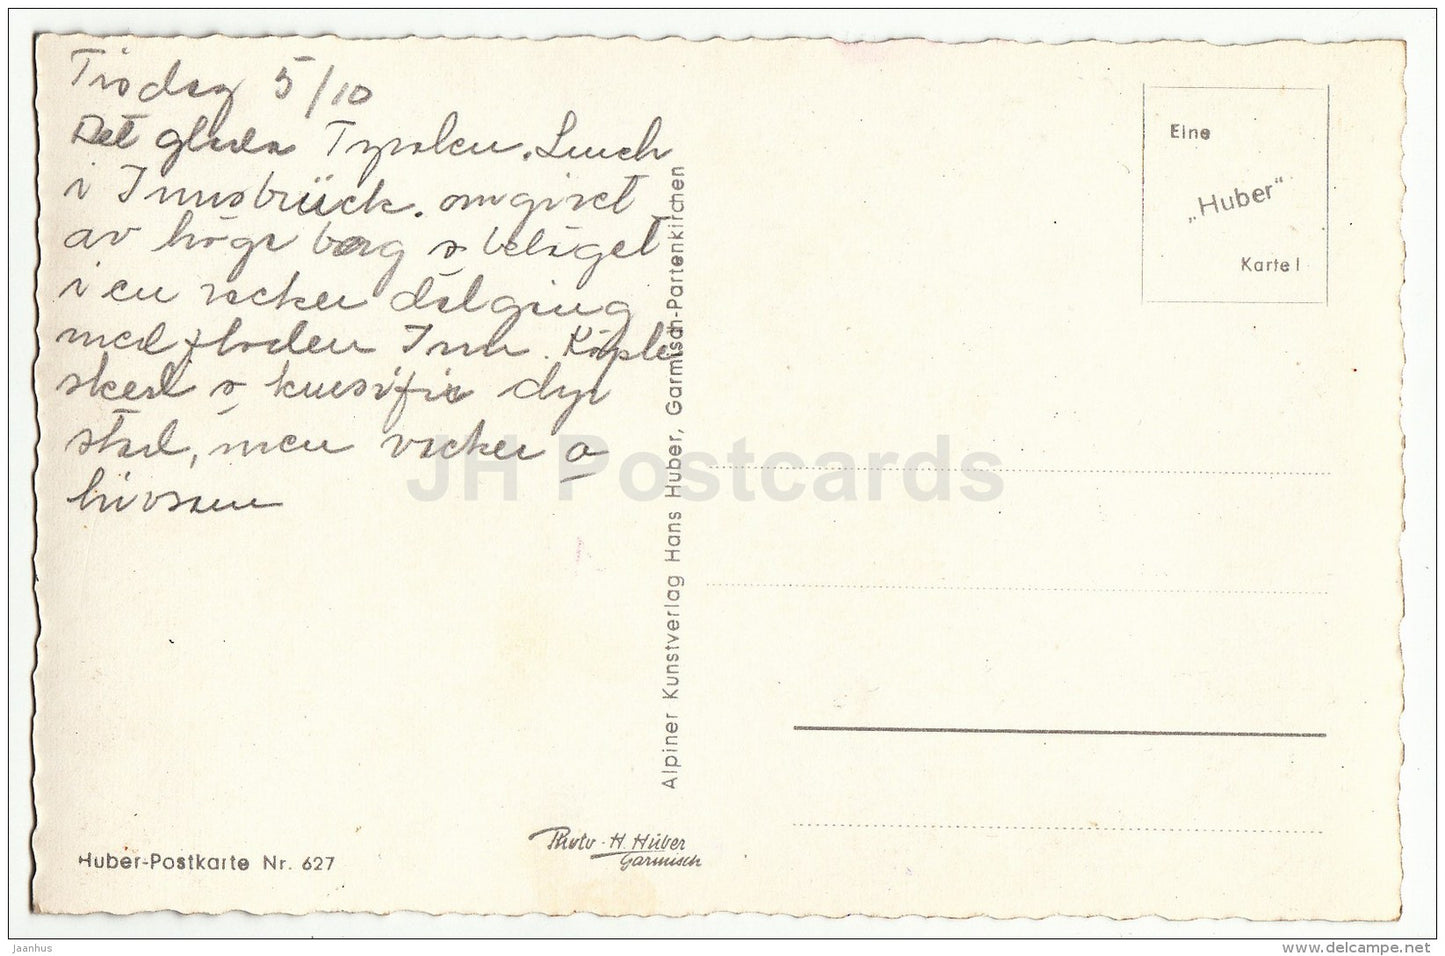 Tisdag 5/10
Det glada Tyrolen. Lunch
i Innsbrück. omgivet
av höga berg o beläget
i en vacker dalgång
med floden Inn. Käple
sked o krusifix dyr
stad, men vacker o
livsam
Eine
„Huber"
Karte!
Alpiner Kunstverlag Hans Huber, Garmisch-Partenkirchen
JH Postcards
Huber-Postkarte Nr. 627
Photo - H. Huber
Garmisch
jaanhus
www.delcampe.net